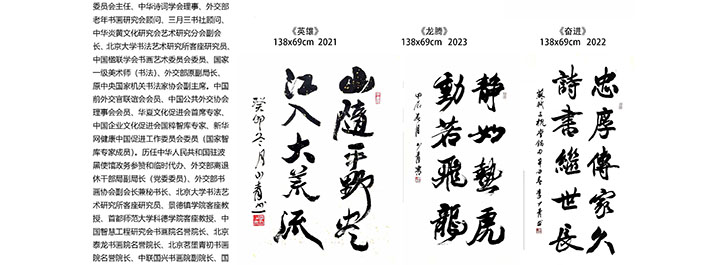 委员会主任、中华诗词学会理事、外交部
老年书画研究会顾问、三月三书社顾问、
中华炎黄文化研究会艺术研究分会副会
长、北京大学书法艺术研究所客座研究员、
中国楹联学会书画艺术委员会委员、国家
一级美术师（书法）、外交部原副局长、
原中央国家机关书法家协会副主席。中国
前外交官联谊会会员、中国公共外交协会
理事会会员、华夏文化促进会首席专家、
中国企业文化促进会国粹智库专家、新华
网健康中国促进工作委员会委员（国家智
库专家成员）。历任中华人民共和国驻波
黑使馆政务参赞和临时代办、外交部离退
休干部局副局长（党委委员）、外交部书
画协会副会长兼秘书长、北京大学书法艺
术研究所客座研究员、景德镇学院客座教
授、首都师范大学科德学院客座教授、中
国智慧工程研究会书画院名誉院长、北京
泰龙书画院名誉院长、北京茗堡青初书画
院名誉院长、中联国兴书画院副院长、国
《英雄》
138x69cm 2021
山随平野尽
江入大荒流
癸卯冬月
《龙腾》
138x69cm 2023
静如蛰虎
動若飛龍
《奋进》
138x69cm 2022
忠厚傳家久
詩書繼世長